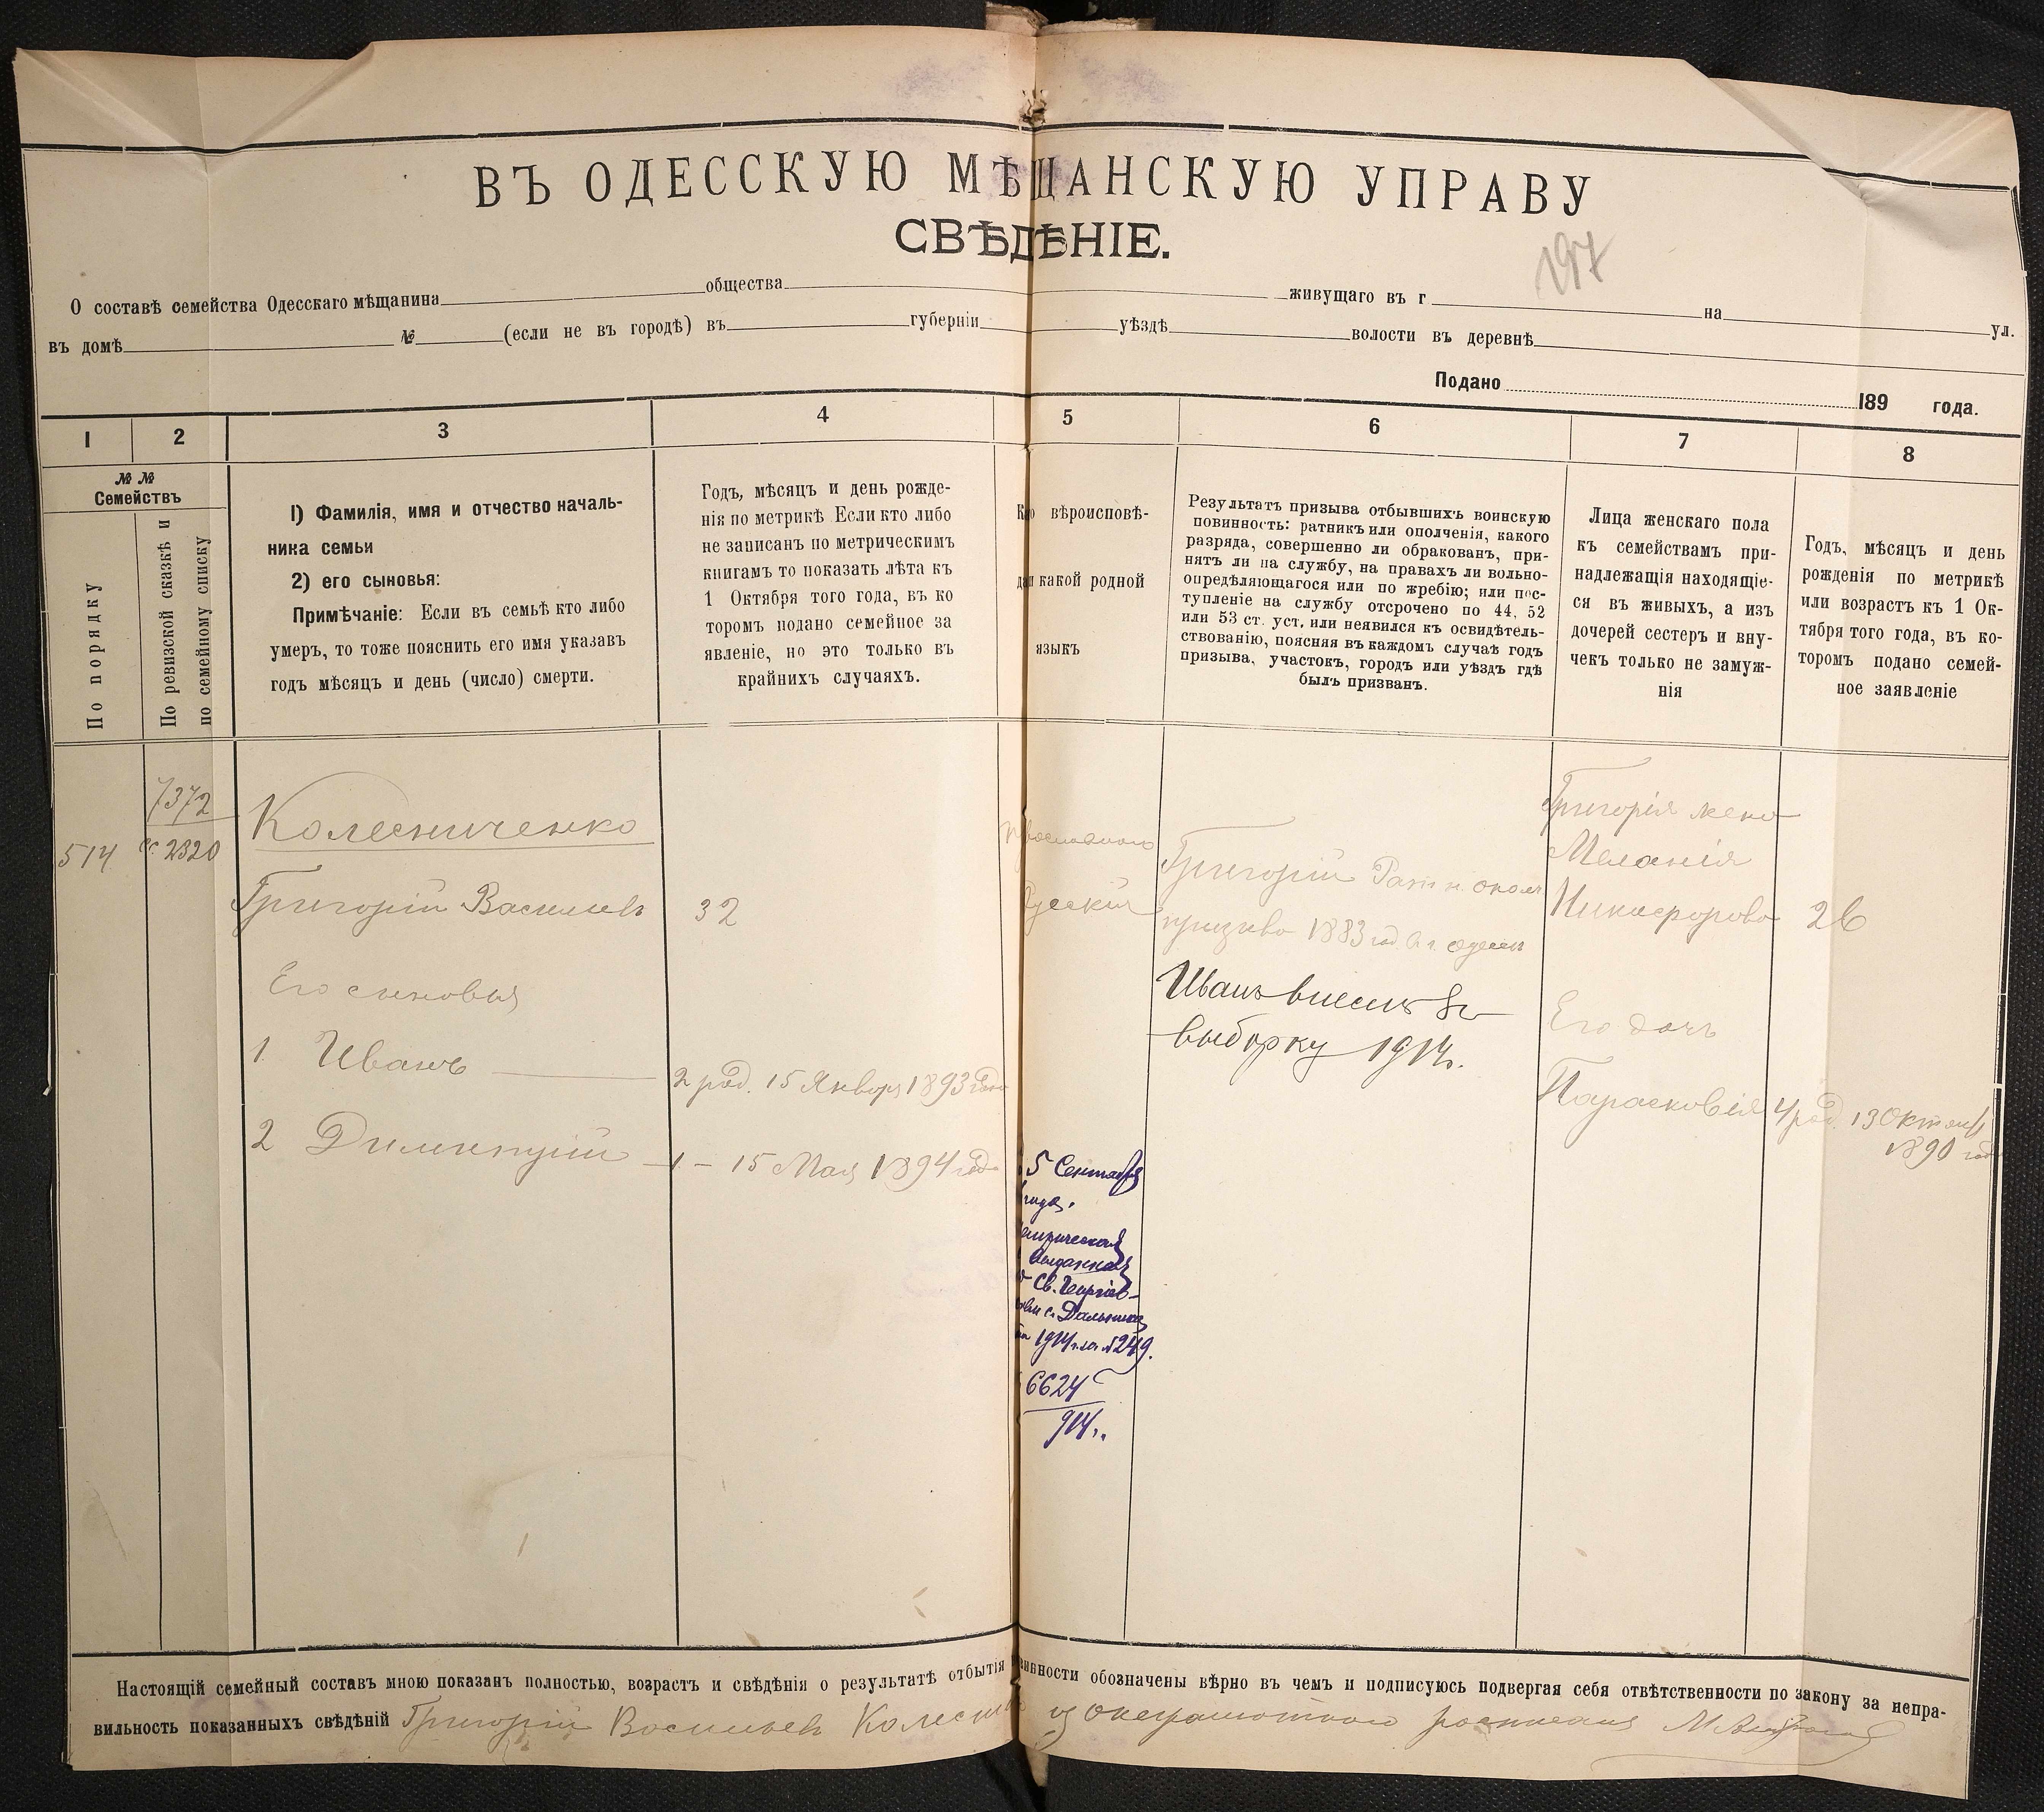 ВЪ ОДЕССКУЮ МѢЩАНСКУЮ УПРАВУ
СВѢДѢНІЕ.
197
О составѣ семейства Одесскаго мѣщанина общества живущаго въ г на ул.
въ домѣ № (если не въ городѣ) въ губерніи уѣздѣ волости въ деревнѣ
Подано 189 года.
1 2 3 4 5 6 7 8
№ № Семействъ
По порядку
По ревизской сказкѣ и
по семейному списку
1) Фамилія, имя и отчество началь-
ника семьи
2) его сыновья:
Примѣчаніе: Если въ семьѣ кто либо
умеръ, то тоже пояснить его имя указавъ
годъ мѣсяцъ и день (число) смерти.
Годъ, мѣсяцъ и день рожде-
нія по метрикѣ Если кто либо
не записанъ по метрическимъ
книгамъ то показать лѣта къ
1 Октября того года, въ ко
торомъ подано семейное за
явленіе, но это только въ
крайнихъ случаяхъ.
вѣроисповѣ-
какой родной
языкъ
Результатъ призыва отбывшихъ воинскую
повинность: ратникъ или ополченія, какого
разряда, совершенно ли обракованъ, при-
нятъ ли на службу, на правахъ ли вольно-
опредѣляющагося или по жребію; или пос-
тупленіе на службу отсрочено по 44, 52
или 53 ст. уст. или неявился къ освидѣтель-
ствованію, поясняя въ каждомъ случаѣ годъ
призыва, участокъ, городъ или уѣздъ гдѣ
былъ призванъ.
Лица женскаго пола
къ семействамъ при-
надлежащія находящіе-
ся въ живыхъ, а изъ
дочерей сестеръ и вну-
чекъ только не замуж-
нія
Годъ, мѣсяцъ и день
рожденія по метрикѣ
или возрастъ къ 1 Ок-
тября того года, въ ко-
торомъ подано семей-
ное заявленіе
514
7372
2320
Колесниченко
Григорій Васильевъ
32
Его сыновья
1 Иванъ
2 род. 15 Января 1893 года
2 Димитрій
1 - 15 Мая 1894 года
Русскій
5 Сентября
года.
Св. Георгіев-
с. Дальника
1914 г. за №249.
6624
914 г.
Григорій Ратн. ополч
призыва 1883 год. в г. Одессы
Иванъ внесенъ въ
выборку 1914 г.
Григорія жена
Меланія
Никифорова
26
Его дочь
Парасковія
4 род. 13 Октября
1890 года
Настоящій семейный составъ мною показанъ полностью, возрастъ и свѣдѣнія о результатѣ отбытія обозначены вѣрно въ чемъ и подписуюсь подвергая себя отвѣтственности по закону за непра-
вильность показанныхъ свѣдѣній Григорій Васильевъ